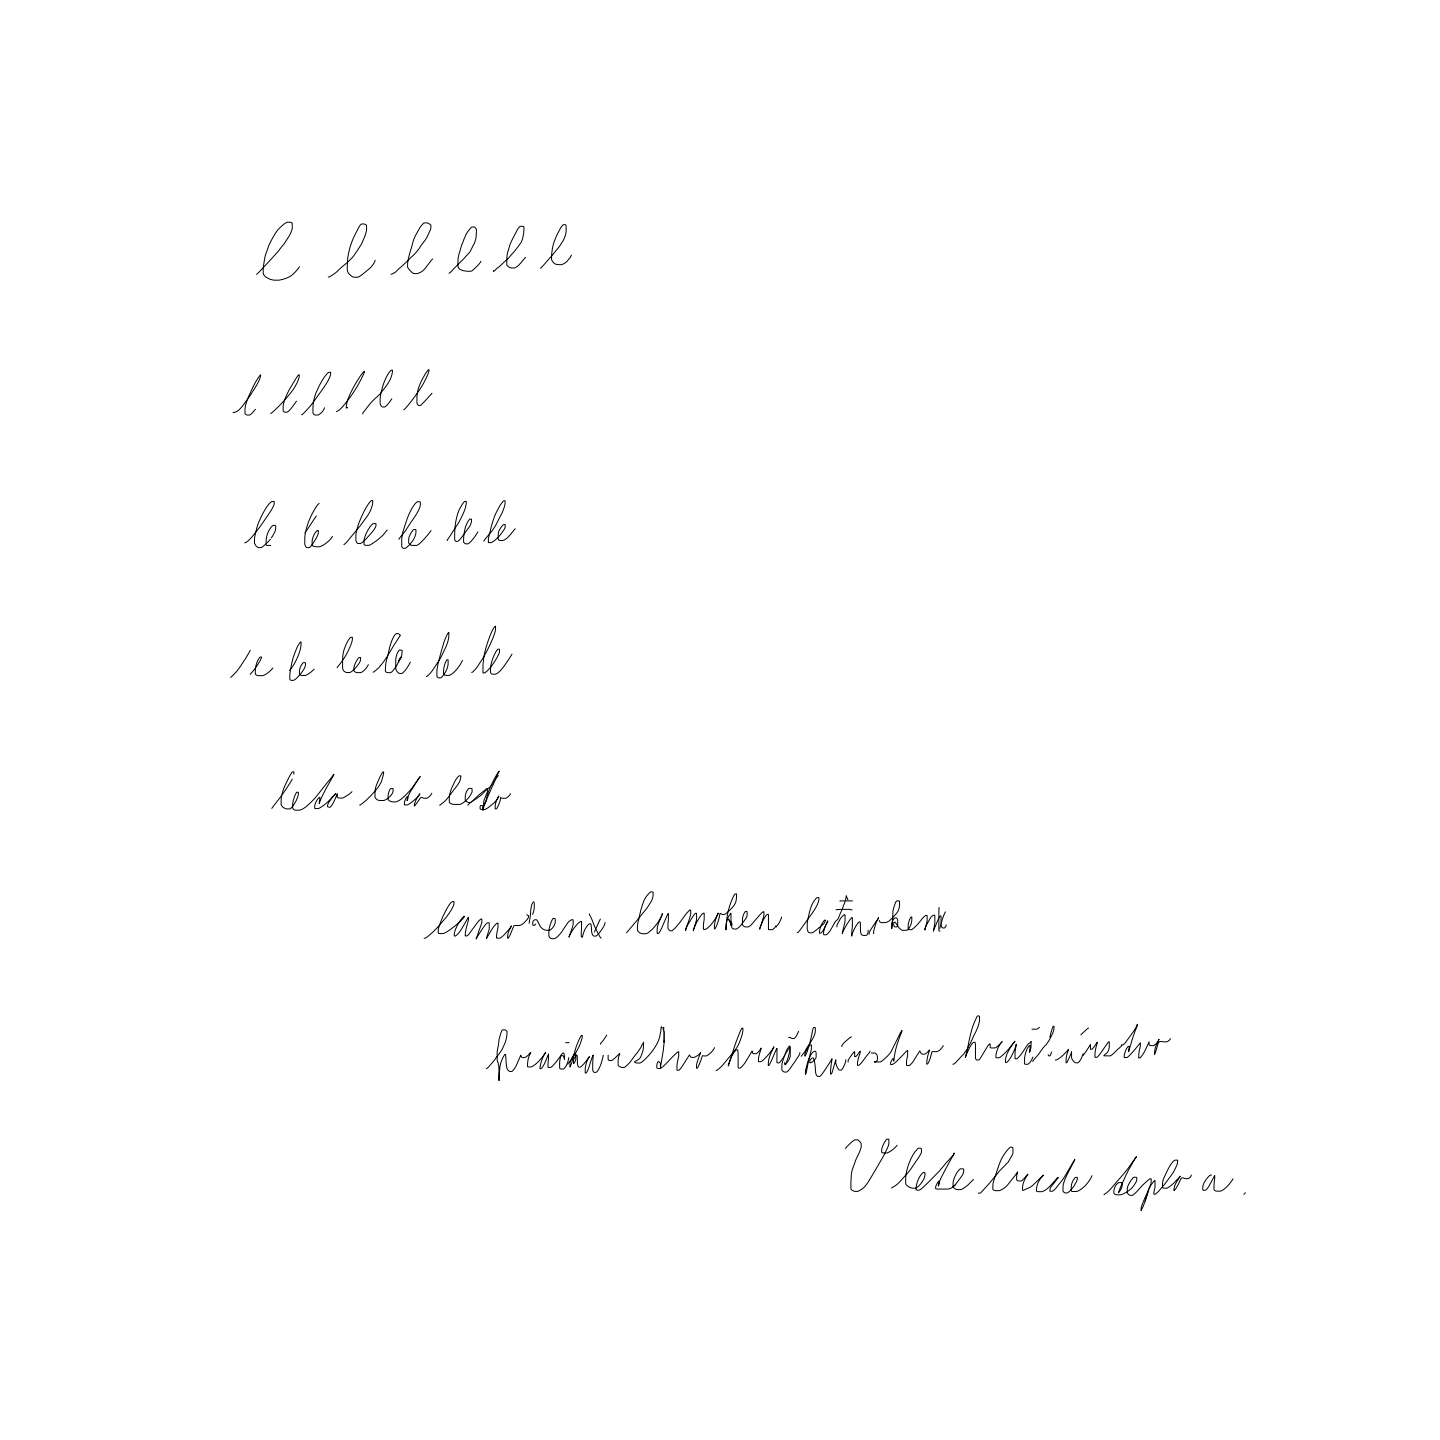 l l l l l l
l l l l l l
le le le le le le
le le le le le le
leto leto leto
lamoken lamoken lamoken
hračkárstvo hračkárstvo hračkárstvo
V lete bude teplo a .